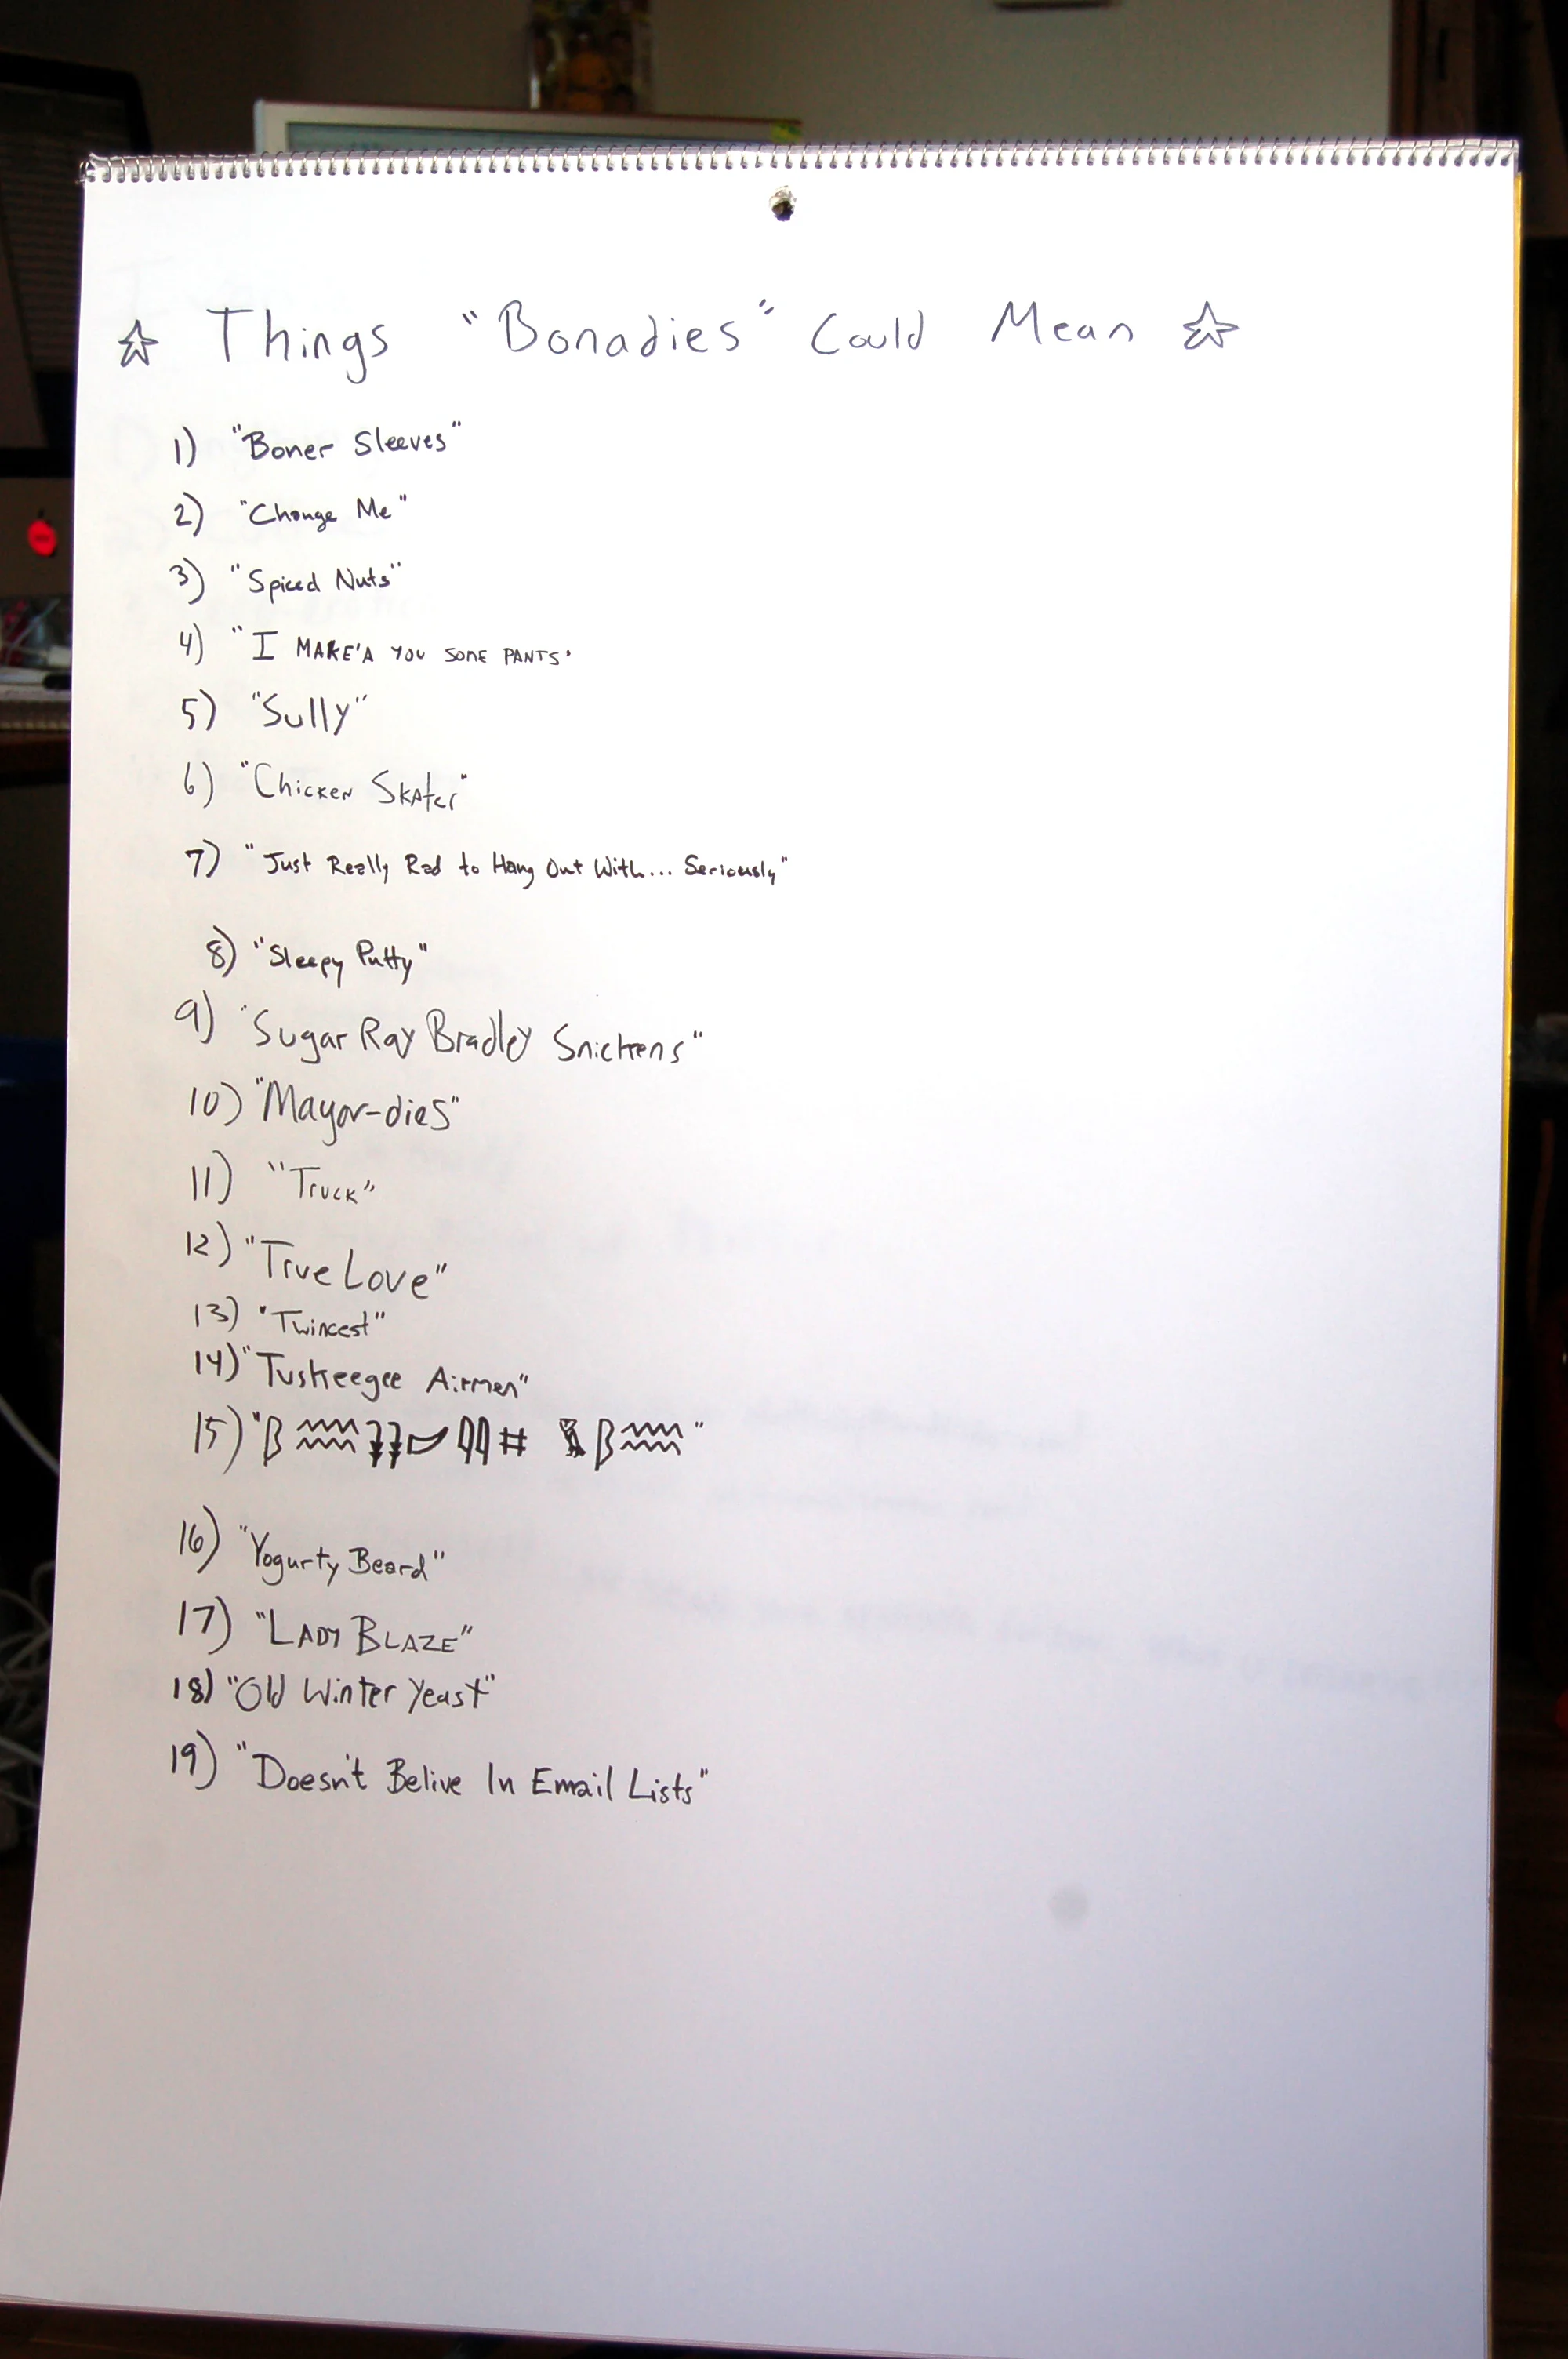 ☆ Things "Bonadies" Could Mean ☆
1) "Boner Sleeves"
2) "Change Me"
3) "Spiced Nuts"
4) "I MAKE'A YOU SOME PANTS"
5) "Sully"
6) "Chicken Skater"
7) "Just Really Rad to Hang Out With... Seriously"
8) "Sleepy Putty"
9) "Sugar Ray Bradley Snickens"
10) "Mayor-dies"
11) "Truck"
12) "True Love"
13) "Twincest"
14) "Tuskeegee Airmen"
15)
16) "Yogurty Beard"
17) "LADY BLAZE"
18) "Old Winter Yeast"
19) "Doesn't Belive In Email Lists"